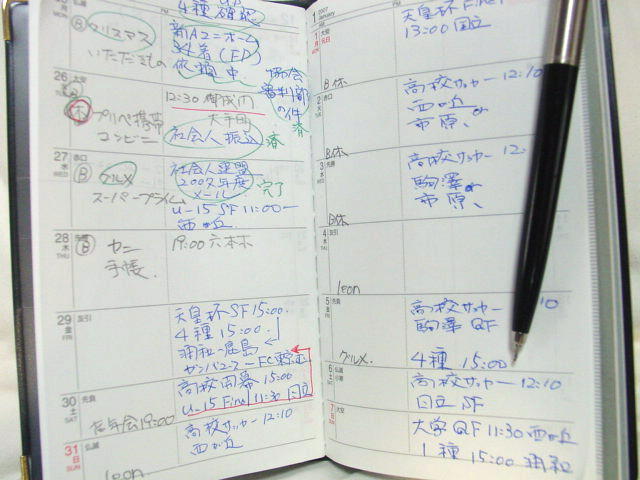 4種確認
B
クリスマス
いただきもの
新A2=ホーム
26
火
TUE
大安
休
プリペ携帯
コンビニ
12:30 御成門
大手町
社会人 振込
済
協会
審判
の件
済
27
水
WED
赤口
B
グルメ
スーパープライム
社会人連盟
2007年度
メール
完了
U-15 SF 11:00〜
西が丘
28
木
THU
先勝
B
カニ
手帳.
19:00 六本木
29
金
FRI
友引
天皇杯 SF 15:00.
4種 15:00.
浦和-鹿島
30
土
SAT
先負
忘年会19:00
高校開幕 15:00
U-15 Final 11:30 国立
31
日
SUN
仏滅
leon
高校サッカー 12:10
西が丘
2007
January
1
月
大安
天皇杯 Final
13:00 国立
B休
2
火
赤口
高校サッカー 12:10
西が丘
市原、
B休
3
水
WED
先勝
高校サッカー 12:
駒澤
市原、
B休
4
木
THU
友引
leon
5
金
FRI
先負
高校サッカー
駒澤 QF
グルメ.
4種 15:00
6
土
SAT
仏滅
小寒
高校サッカー 12:10
国立 SF
7
日
SUN
大安
大学 QF 11:30 西が丘
1種 15:00 浦和